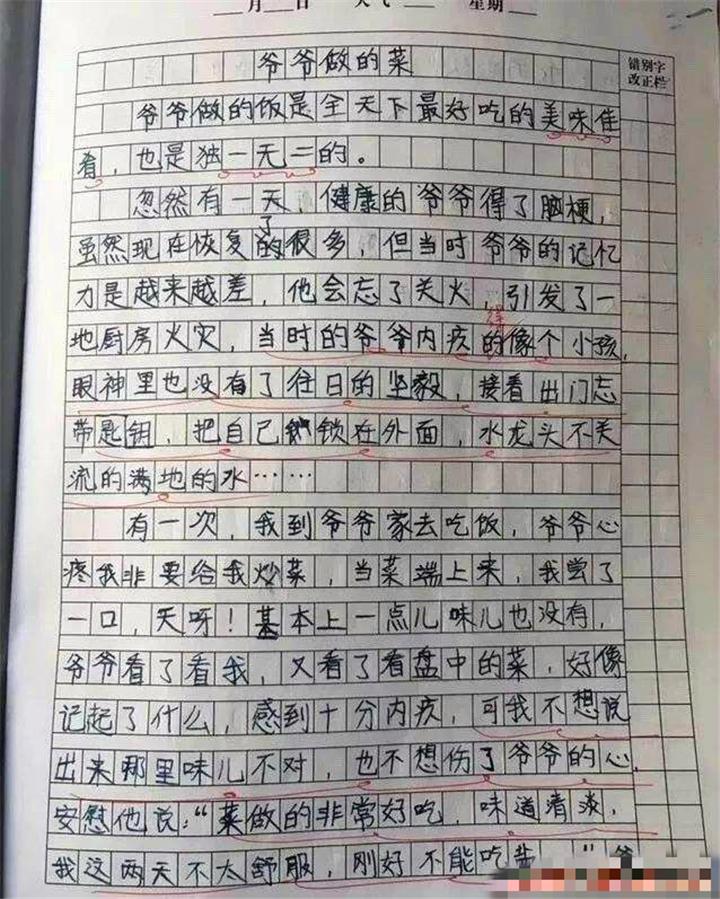 月 日 天气 星期
错别字
改正栏
爷爷做的菜
爷爷做的饭是全天下最好吃的美味佳
肴，也是独一无二的。
忽然有一天，健康的爷爷得了脑梗，
了
虽然现在恢复的很多，但当时爷爷的记忆
力是越来越差，他会忘了关火，引发了一
地厨房火灾，当时的爷爷内疚的像个小孩，
眼神里也没有了往日的坚毅，接着出门忘
带匙钥，把自己锁在外面，水龙头不关
流的满地的水……
有一次，我到爷爷家去吃饭，爷爷心
疼我非要给我炒菜，当菜端上来，我尝了
一口，天呀！基本上一点儿味儿也没有，
爷爷看了看我，又看了看盘中的菜，好像
记起了什么，感到十分内疚，可我不想说
出来那里味儿不对，也不想伤了爷爷的心，
安慰他说：“菜做的非常好吃，味道清淡，
我这两天不太舒服，刚好不能吃盐。”爷